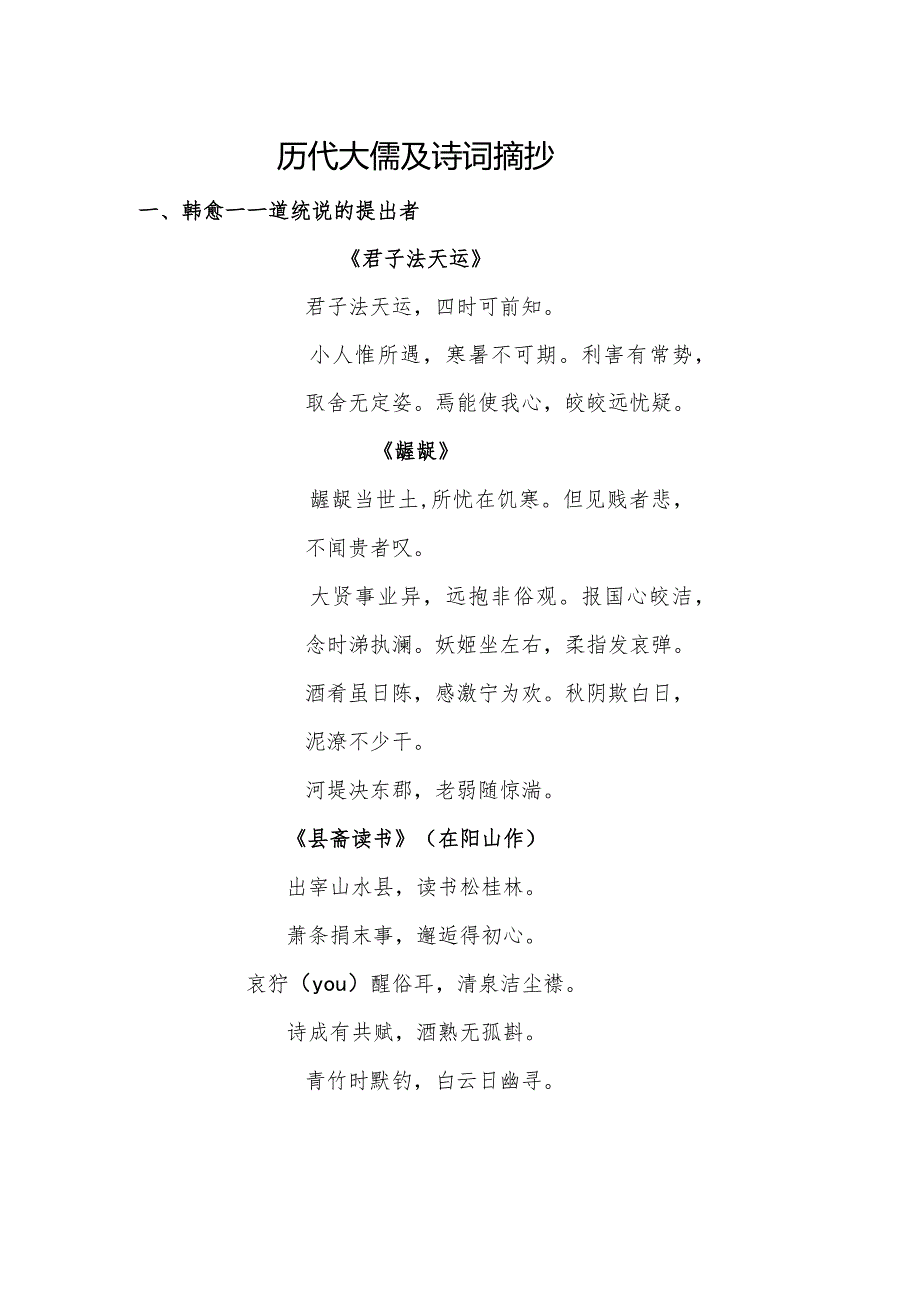 历代大儒及诗词摘抄
一、韩愈一一道统说的提出者
《君子法天运》
君子法天运，四时可前知。
小人惟所遇，寒暑不可期。利害有常势，
取舍无定姿。焉能使我心，皎皎远忧疑。
《龌龊》
龌龊当世土,所忧在饥寒。但见贱者悲，
不闻贵者叹。
大贤事业异，远抱非俗观。报国心皎洁，
念时涕执澜。妖姬坐左右，柔指发哀弹。
酒肴虽日陈，感激宁为欢。秋阴欺白日，
泥潦不少干。
河堤决东郡，老弱随惊湍。
《县斋读书》（在阳山作）
出宰山水县，读书松桂林。
萧条捐末事，邂逅得初心。
哀狞（you）醒俗耳，清泉洁尘襟。
诗成有共赋，酒熟无孤斟。
青竹时默钓，白云日幽寻。